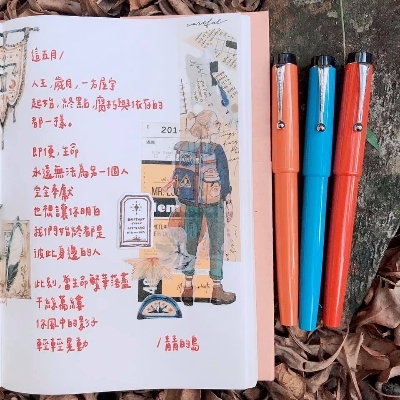 這五月/
人生,歲月,一方屋宇
起始,終點,腐朽與依存的
都一樣。
即使,生命
永遠無法為另一個人
完全奉獻
也想讓你明白
我們始終都是
彼此身邊的人
此刻,當生命繁華落盡
千絲萬縷
你風中的影子
輕輕晃動
/青的鳥
careful
201
MR.